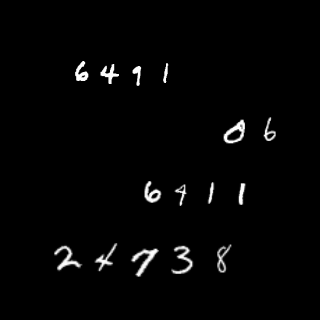 6491
06
6411
24738